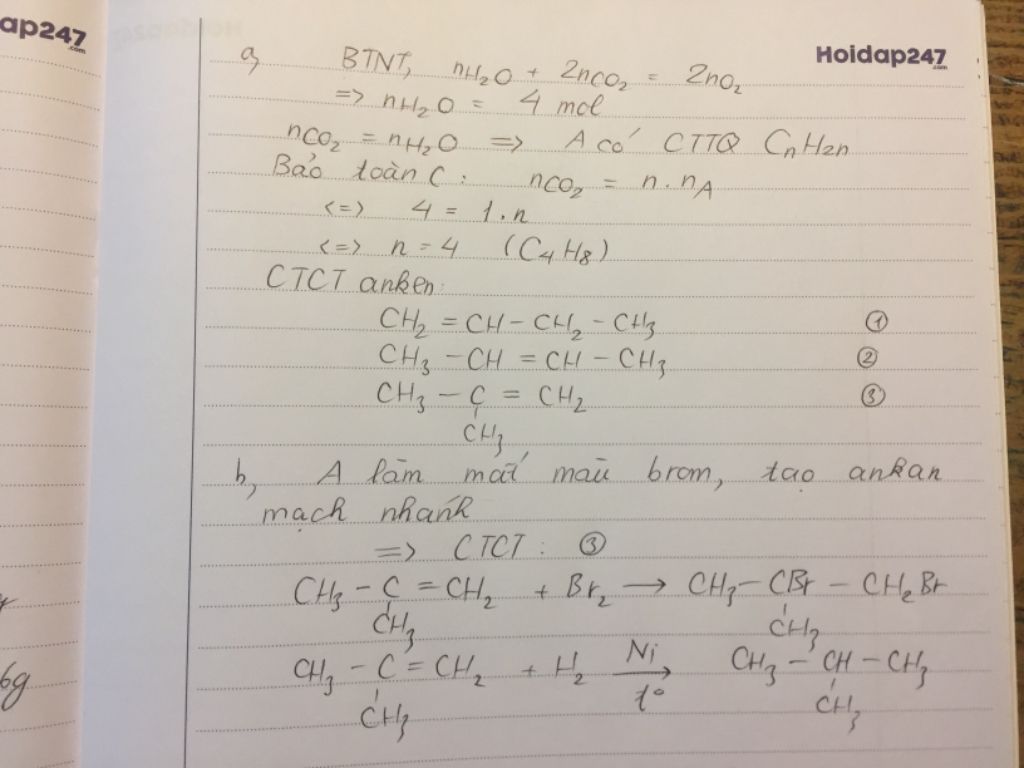 ap247
.com
Hoidap247
.com
a, BTNT, nH₂O + 2nCO₂ = 2nO₂
=> nH₂O = 4 mol
nCO₂ = nH₂O => A có CTTQ CnH2n
Bảo toàn C: nCO₂ = n.nA
<=> 4 = 1.n
<=> n = 4 (C₄H₈)
CTCT anken:
CH₂ = CH - CH₂ - CH₃ ①
CH₃ - CH = CH - CH₃ ②
CH₃ - C = CH₂ ③
CH₃
b, A làm mất màu brom, tạo ankan
mạch nhánh
=> CTCT: ③
CH₃ - C = CH₂ + Br₂ → CH₃ - CBr - CH₂Br
CH₃ CH₃
CH₃ - C = CH₂ + H₂ Ni → t° CH₃ - CH - CH₃
CH₃ CH₃
6g